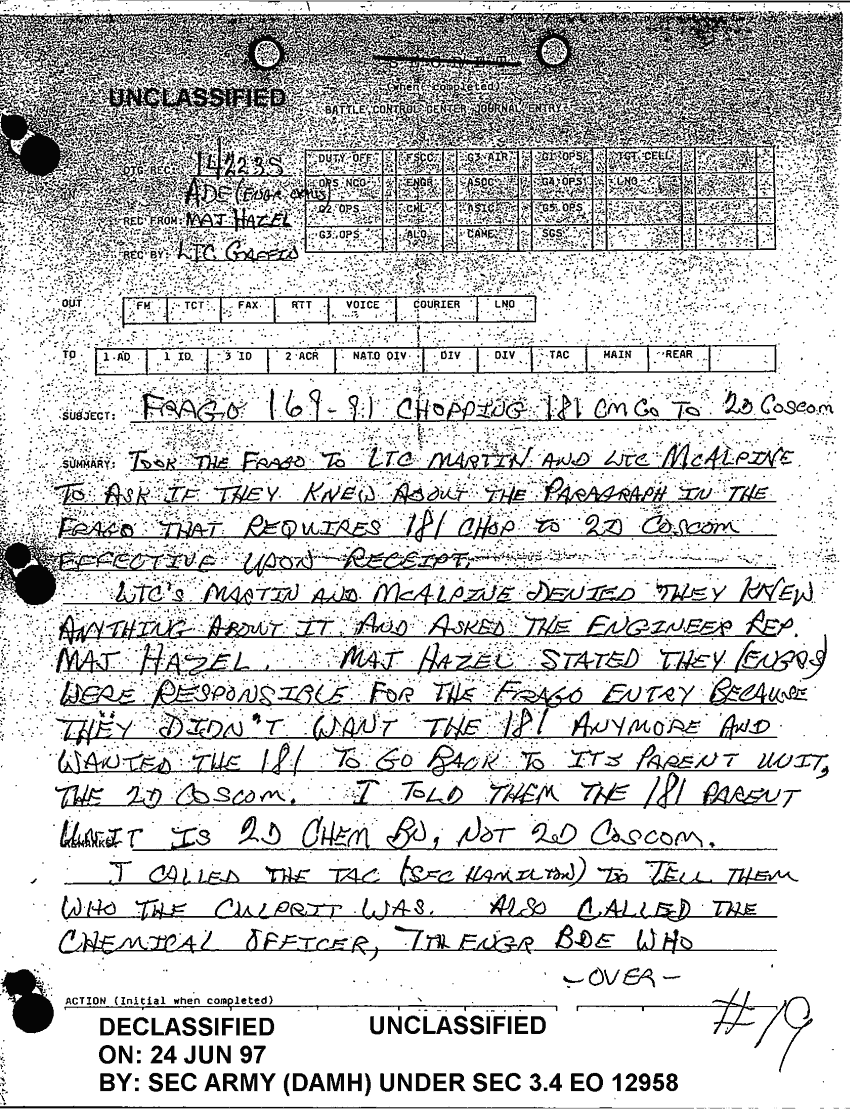 UNCLASSIFIED
(when completed)
BATTLE CONTROL CENTER JOURNAL ENTRY
DTG REC: 142235
ADE (ENGR
REC FROM: MAJ HAZEL
REC BY: LTC
DUTY OFF FSCC G3 AIR G1 OPS TGT CELL
OPS NCO ENGR ASOC G4 OPS LNO
G2 OPS CML ASIC G5 OPS
G3 OPS ALO CAME SGS
OUT FM TCT FAX RTT VOICE COURIER LNO
TO 1 AD 1 ID 3 ID 2 ACR NATO DIV DIV DIV TAC MAIN REAR
SUBJECT: FRAGO 169-91 CHOPPING 181 CM CO TO 2D COSCOM
SUMMARY: TOOK THE FRAGO TO LTC MARTIN AND LTC McALPINE
TO ASK IF THEY KNEW ABOUT THE PARAGRAPH IN THE
FRAGO THAT REQUIRES 181 CHOP TO 2D COSCOM
EFFECTIVE UPON RECEIPT.
LTC'S MARTIN AND McALPINE DENIED THEY KNEW
ANYTHING ABOUT IT AND ASKED THE ENGINEER REP.
MAJ HAZEL. MAJ HAZEL STATED THEY (ENGRS)
WERE RESPONSIBLE FOR THE FRAGO ENTRY BECAUSE
THEY DIDN'T WANT THE 181 ANYMORE AND
WANTED THE 181 TO GO BACK TO ITS PARENT UNIT,
THE 2D COSCOM. I TOLD THEM THE 181 PARENT
UNIT IS 2D CHEM BN, NOT 2D COSCOM.
I CALLED THE TAC (SFC HAMILTON) TO TELL THEM
WHO THE CULPRIT WAS. ALSO CALLED THE
CHEMICAL OFFICER, 7TH ENGR BDE WHO
-OVER-
ACTION (Initial when completed)
#19
DECLASSIFIED UNCLASSIFIED
ON: 24 JUN 97
BY: SEC ARMY (DAMH) UNDER SEC 3.4 EO 12958